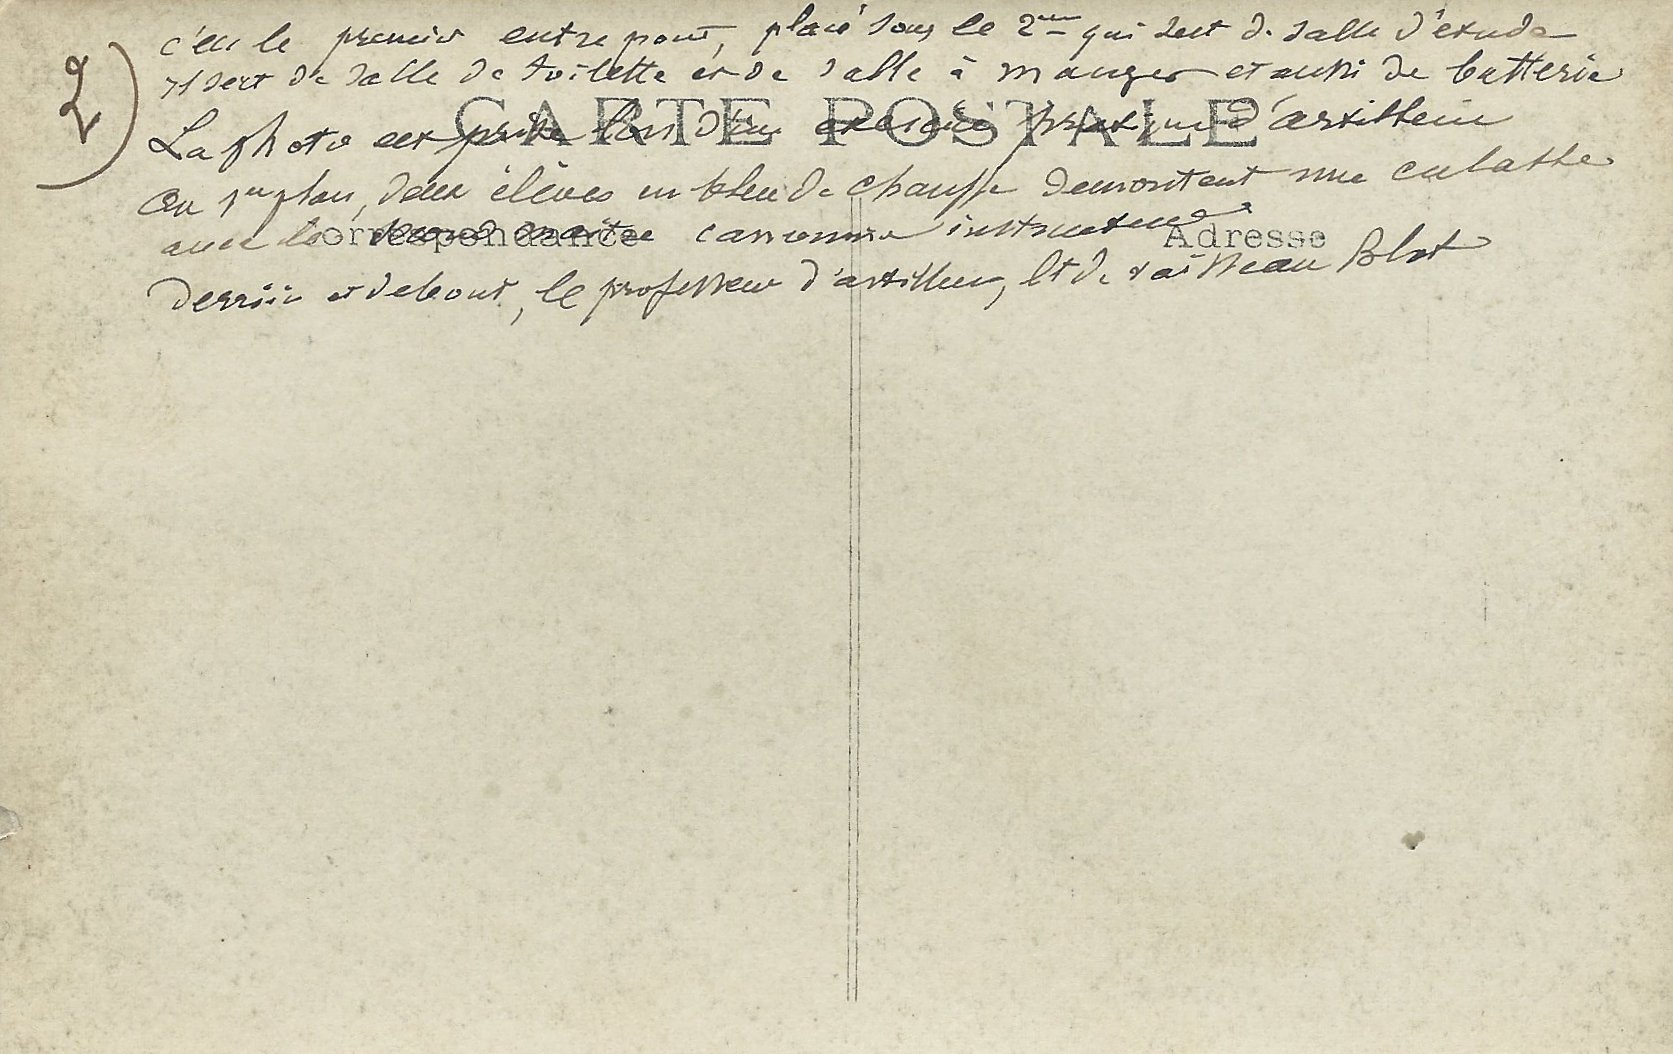 2)
c'est le premier entrepont, placé sous le 2ème qui sert de salle d'étude
Il sert de salle de toilette et de salle à manger et aussi de batterie
CARTE POSTALE
La photo est prise lors d'un exercice pratique d'artillerie
Au 1er plan, deux élèves en bleu de chauffe demontent une culasse
avec le second maître canonnier instructeur
Correspondance
Adresse
Derrière et debout, le professeur d'artillerie, lt de vaisseau Blot